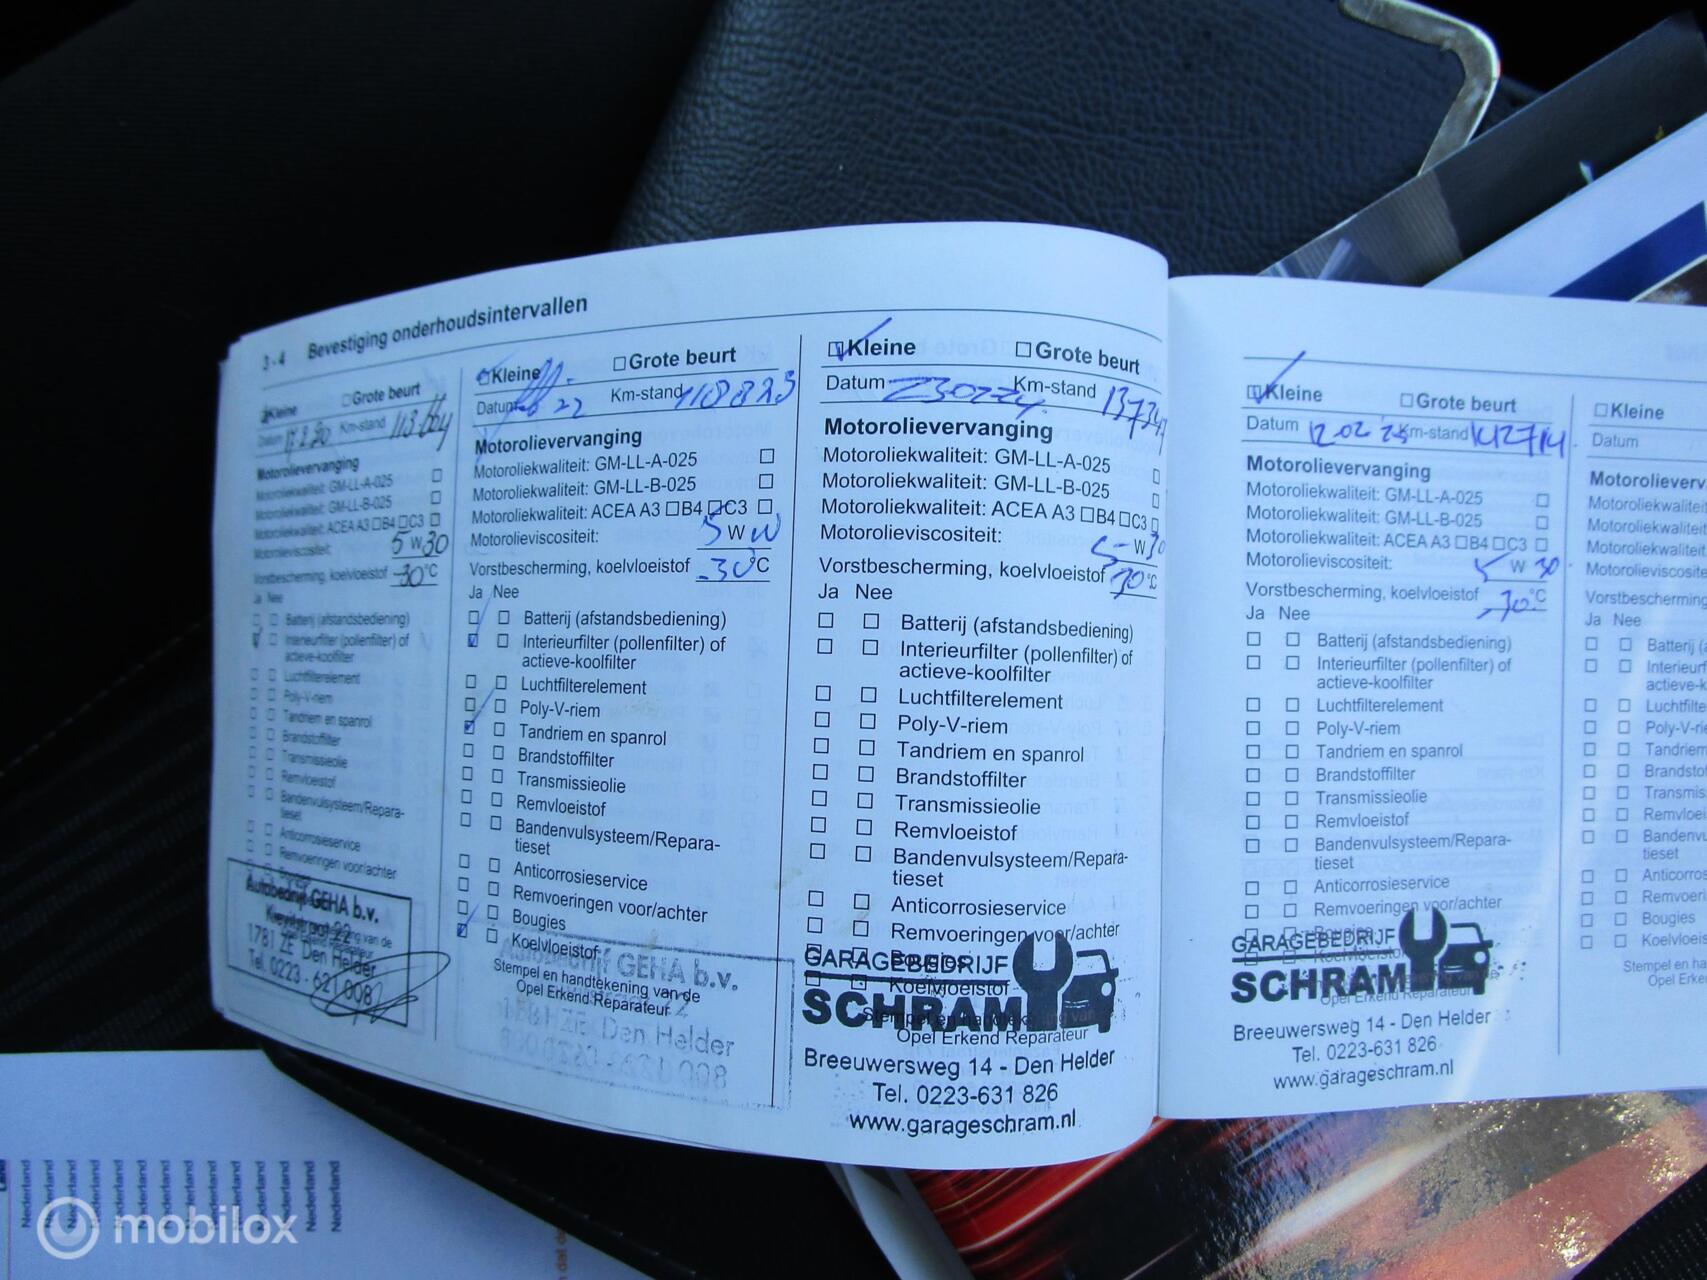 3 - 4 Bevestiging onderhoudsintervallen
Kleine □ Grote beurt
Datum Km-stand
Motorolievervanging
Motoroliekwaliteit: GM-LL-A-025 □
Motoroliekwaliteit: GM-LL-B-025 □
Motoroliekwaliteit: ACEA A3 □B4 □C3 □
Motorolieviscositeit: 5 W 30
Vorstbescherming, koelvloeistof -30 °C
Ja Nee
Batterij (afstandsbediening)
Interieurfilter (pollenfilter) of
actieve-koolfilter
Luchtfilterelement
Poly-V-riem
Tandriem en spanrol
Brandstoffilter
Transmissieolie
Remvloeistof
Bandenvulsysteem/Repara-
tieset
Anticorrosieservice
Remvoeringen voor/achter
Autobedrijf GEHA b.v.
1781 ZE Den Helder
Tel. 0223 - 621 008
Kleine □ Grote beurt
Datum 22 Km-stand 118823
Motorolievervanging
Motoroliekwaliteit: GM-LL-A-025 □
Motoroliekwaliteit: GM-LL-B-025 □
Motoroliekwaliteit: ACEA A3 □B4 □C3 □
Motorolieviscositeit: 5 W
Vorstbescherming, koelvloeistof -30 °C
Ja Nee
Batterij (afstandsbediening)
Interieurfilter (pollenfilter) of
actieve-koolfilter
Luchtfilterelement
Poly-V-riem
Tandriem en spanrol
Brandstoffilter
Transmissieolie
Remvloeistof
Bandenvulsysteem/Repara-
tieset
Anticorrosieservice
Remvoeringen voor/achter
Bougies
Koelvloeistof
Stempel en handtekening van de
Opel Erkend Reparateur
GEHA b.v.
Den Helder
Kleine □ Grote beurt
Datum Km-stand
Motorolievervanging
Motoroliekwaliteit: GM-LL-A-025 □
Motoroliekwaliteit: GM-LL-B-025 □
Motoroliekwaliteit: ACEA A3 □B4 □C3 □
Motorolieviscositeit: 5 W 30
Vorstbescherming, koelvloeistof °C
Ja Nee
Batterij (afstandsbediening)
Interieurfilter (pollenfilter) of
actieve-koolfilter
Luchtfilterelement
Poly-V-riem
Tandriem en spanrol
Brandstoffilter
Transmissieolie
Remvloeistof
Bandenvulsysteem/Repara-
tieset
Anticorrosieservice
Remvoeringen voor/achter
Bougies
Koelvloeistof
GARAGEBEDRIJF
SCHRAM
Opel Erkend Reparateur
Breeuwersweg 14 - Den Helder
Tel. 0223-631 826
www.garageschram.nl
Kleine □ Grote beurt
Datum 12 02 25 Km-stand 142714
Motorolievervanging
Motoroliekwaliteit: GM-LL-A-025 □
Motoroliekwaliteit: GM-LL-B-025 □
Motoroliekwaliteit: ACEA A3 □B4 □C3 □
Motorolieviscositeit: 5 W 30
Vorstbescherming, koelvloeistof -30 °C
Ja Nee
Batterij (afstandsbediening)
Interieurfilter (pollenfilter) of
actieve-koolfilter
Luchtfilterelement
Poly-V-riem
Tandriem en spanrol
Brandstoffilter
Transmissieolie
Remvloeistof
Bandenvulsysteem/Repara-
tieset
Anticorrosieservice
Remvoeringen voor/achter
GARAGEBEDRIJF
SCHRAM
Opel Erkend Reparateur
Breeuwersweg 14 - Den Helder
Tel. 0223-631 826
www.garageschram.nl
□ Kleine
Datum
Motorolieverv
Motoroliekwaliteit
Motoroliekwaliteit
Motoroliekwaliteit
Motorolieviscosite
Vorstbescherming
Ja Nee
Batterij (a
Interieurf
actieve-k
Luchtfilte
Poly-V-ri
Tandriem
Brandsto
Transmis
Remvloei
Bandenvu
tieset
Anticorros
Remvoeri
Bougies
Koelvloeis
Stempel en ha
Opel Erken
Nederland
Nederland
Nederland
Nederland
Nederland
Nederland
Nederland
Nederland
Nederland
Nederland
Nederland
Nederland
mobilox